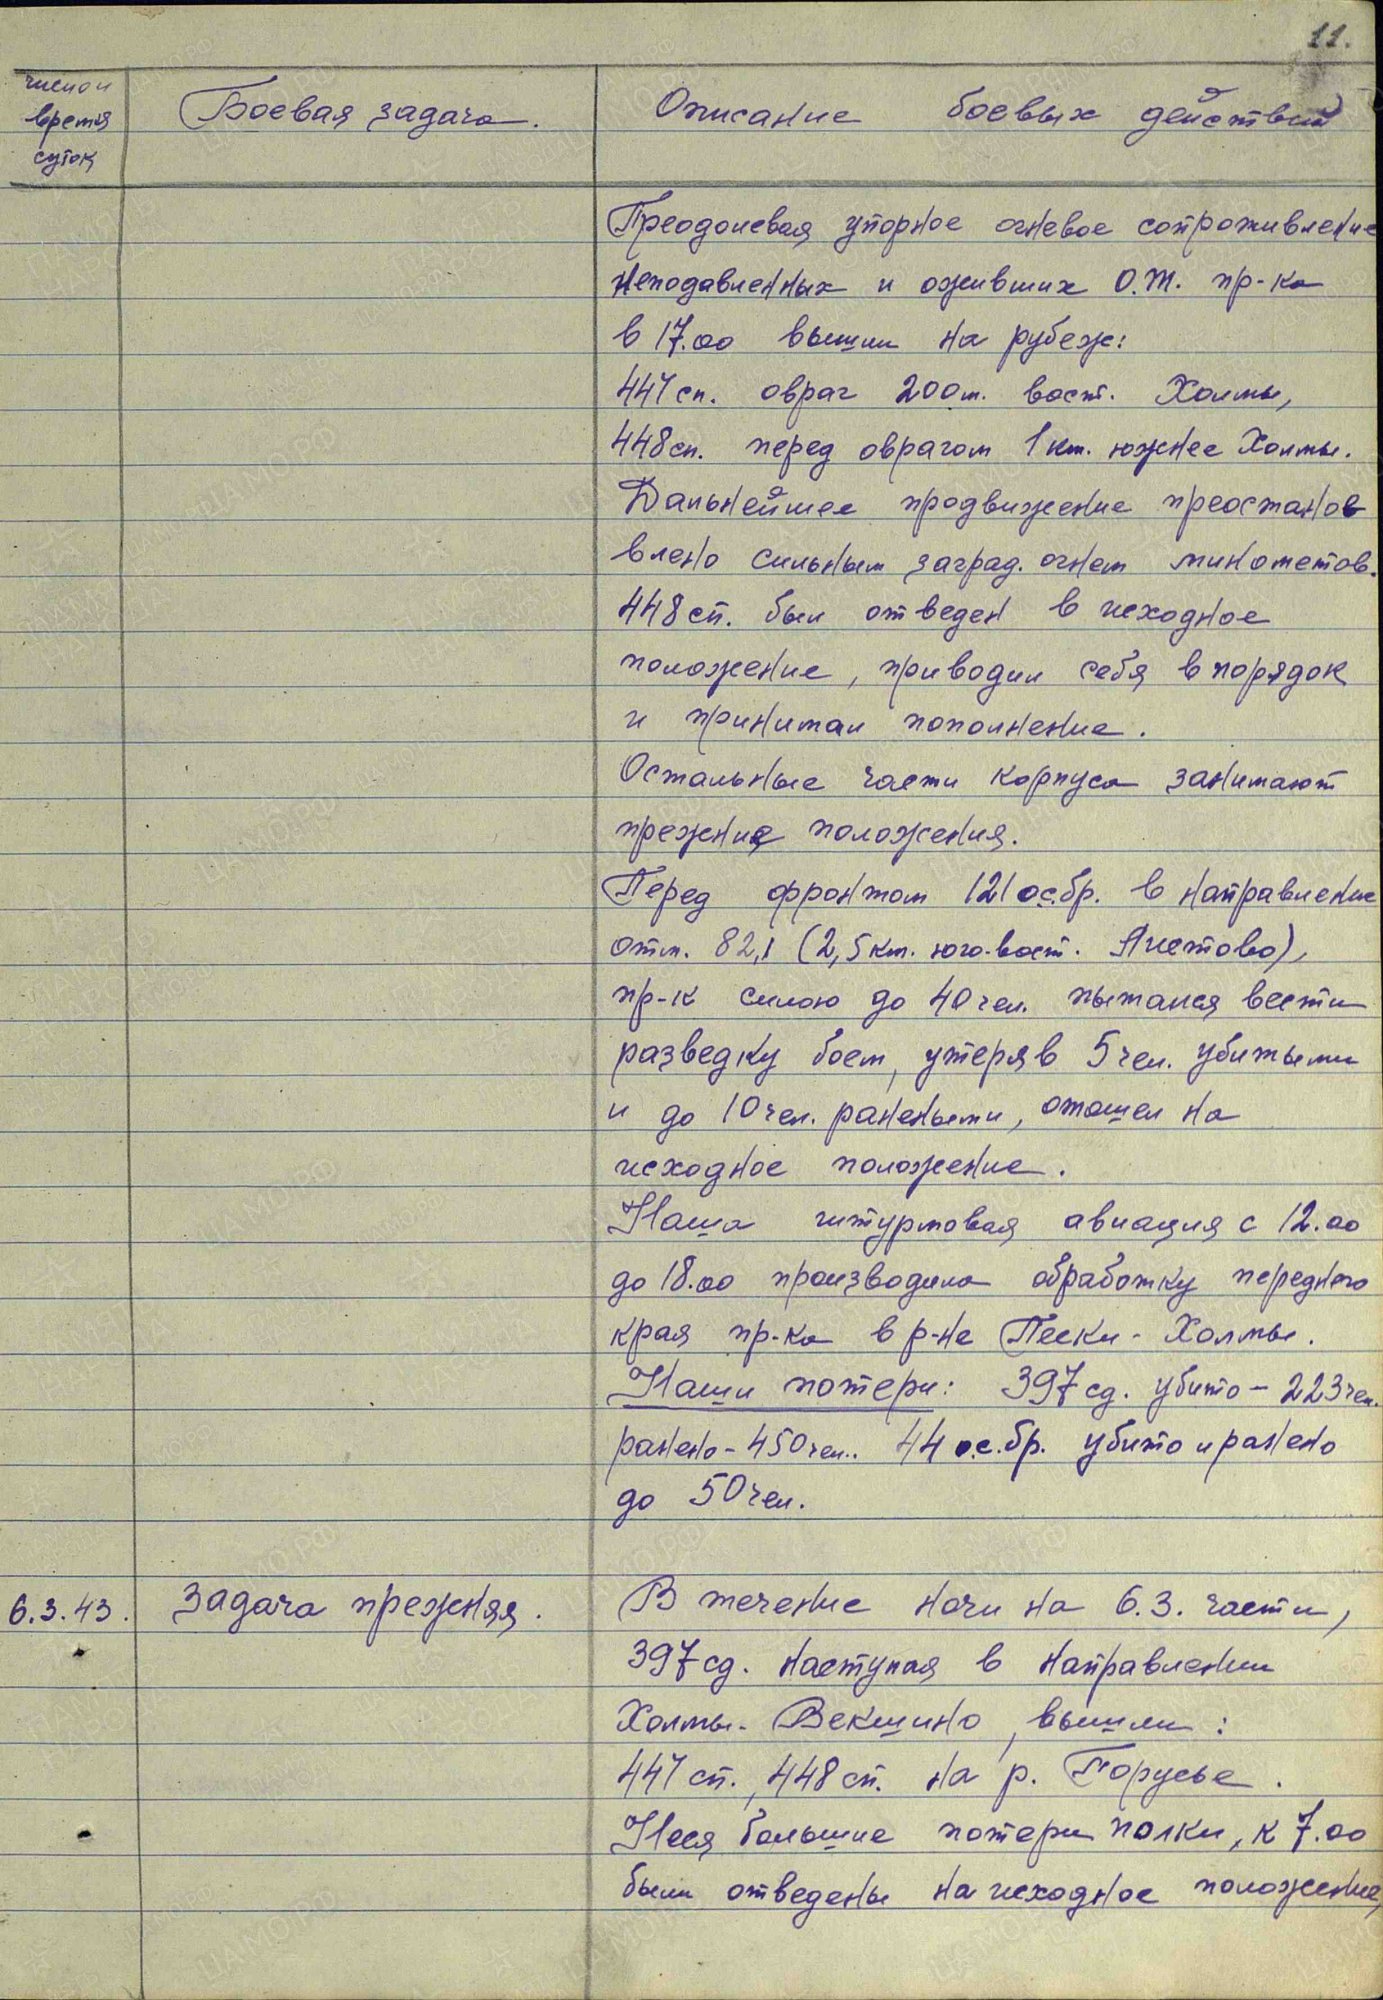 11.
число и
время
суток
Боевая задача.
Описание боевых действий
Преодолевая упорное огневое сопротивление
неподавленных и оживших О.Т. пр-ка
в 17.00 вышли на рубеж:
447 сп. овраг 200 м. вост. Холмы,
448 сп. перед оврагом 1 км. южнее Холмы.
Дальнейшее продвижение преостанов
влено сильным заград. огнем минометов.
448 сп. был отведен в исходное
положение, приводил себя в порядок
и принимал пополнение.
Остальные части корпуса занимают
прежние положения.
Перед фронтом 121 ос.бр. в направление
отм. 82,1 (2,5 км. юго-вост. Аистово),
пр-к силою до 40 чел. пытался вести
разведку боем, утеряв 5 чел. убитыми
и до 10 чел. ранеными, отошел на
исходное положение.
Наша штурмовая авиация с 12.00
до 18.00 производила обработку переднего
края пр-ка в р-не Пески - Холмы.
Наши потери: 397 сд. убито - 223 чел.
ранено - 450 чел.. 44 ос.бр. убито и ранено
до 50 чел.
6.3.43.
Задача прежняя.
В течение ночи на 6.3. части,
397 сд. наступая в направлении
Холмы - Векшино, вышли:
447 сп., 448 сп. на р. Порусье.
Неся большие потери полки, к 7.00
были отведены на исходное положение,